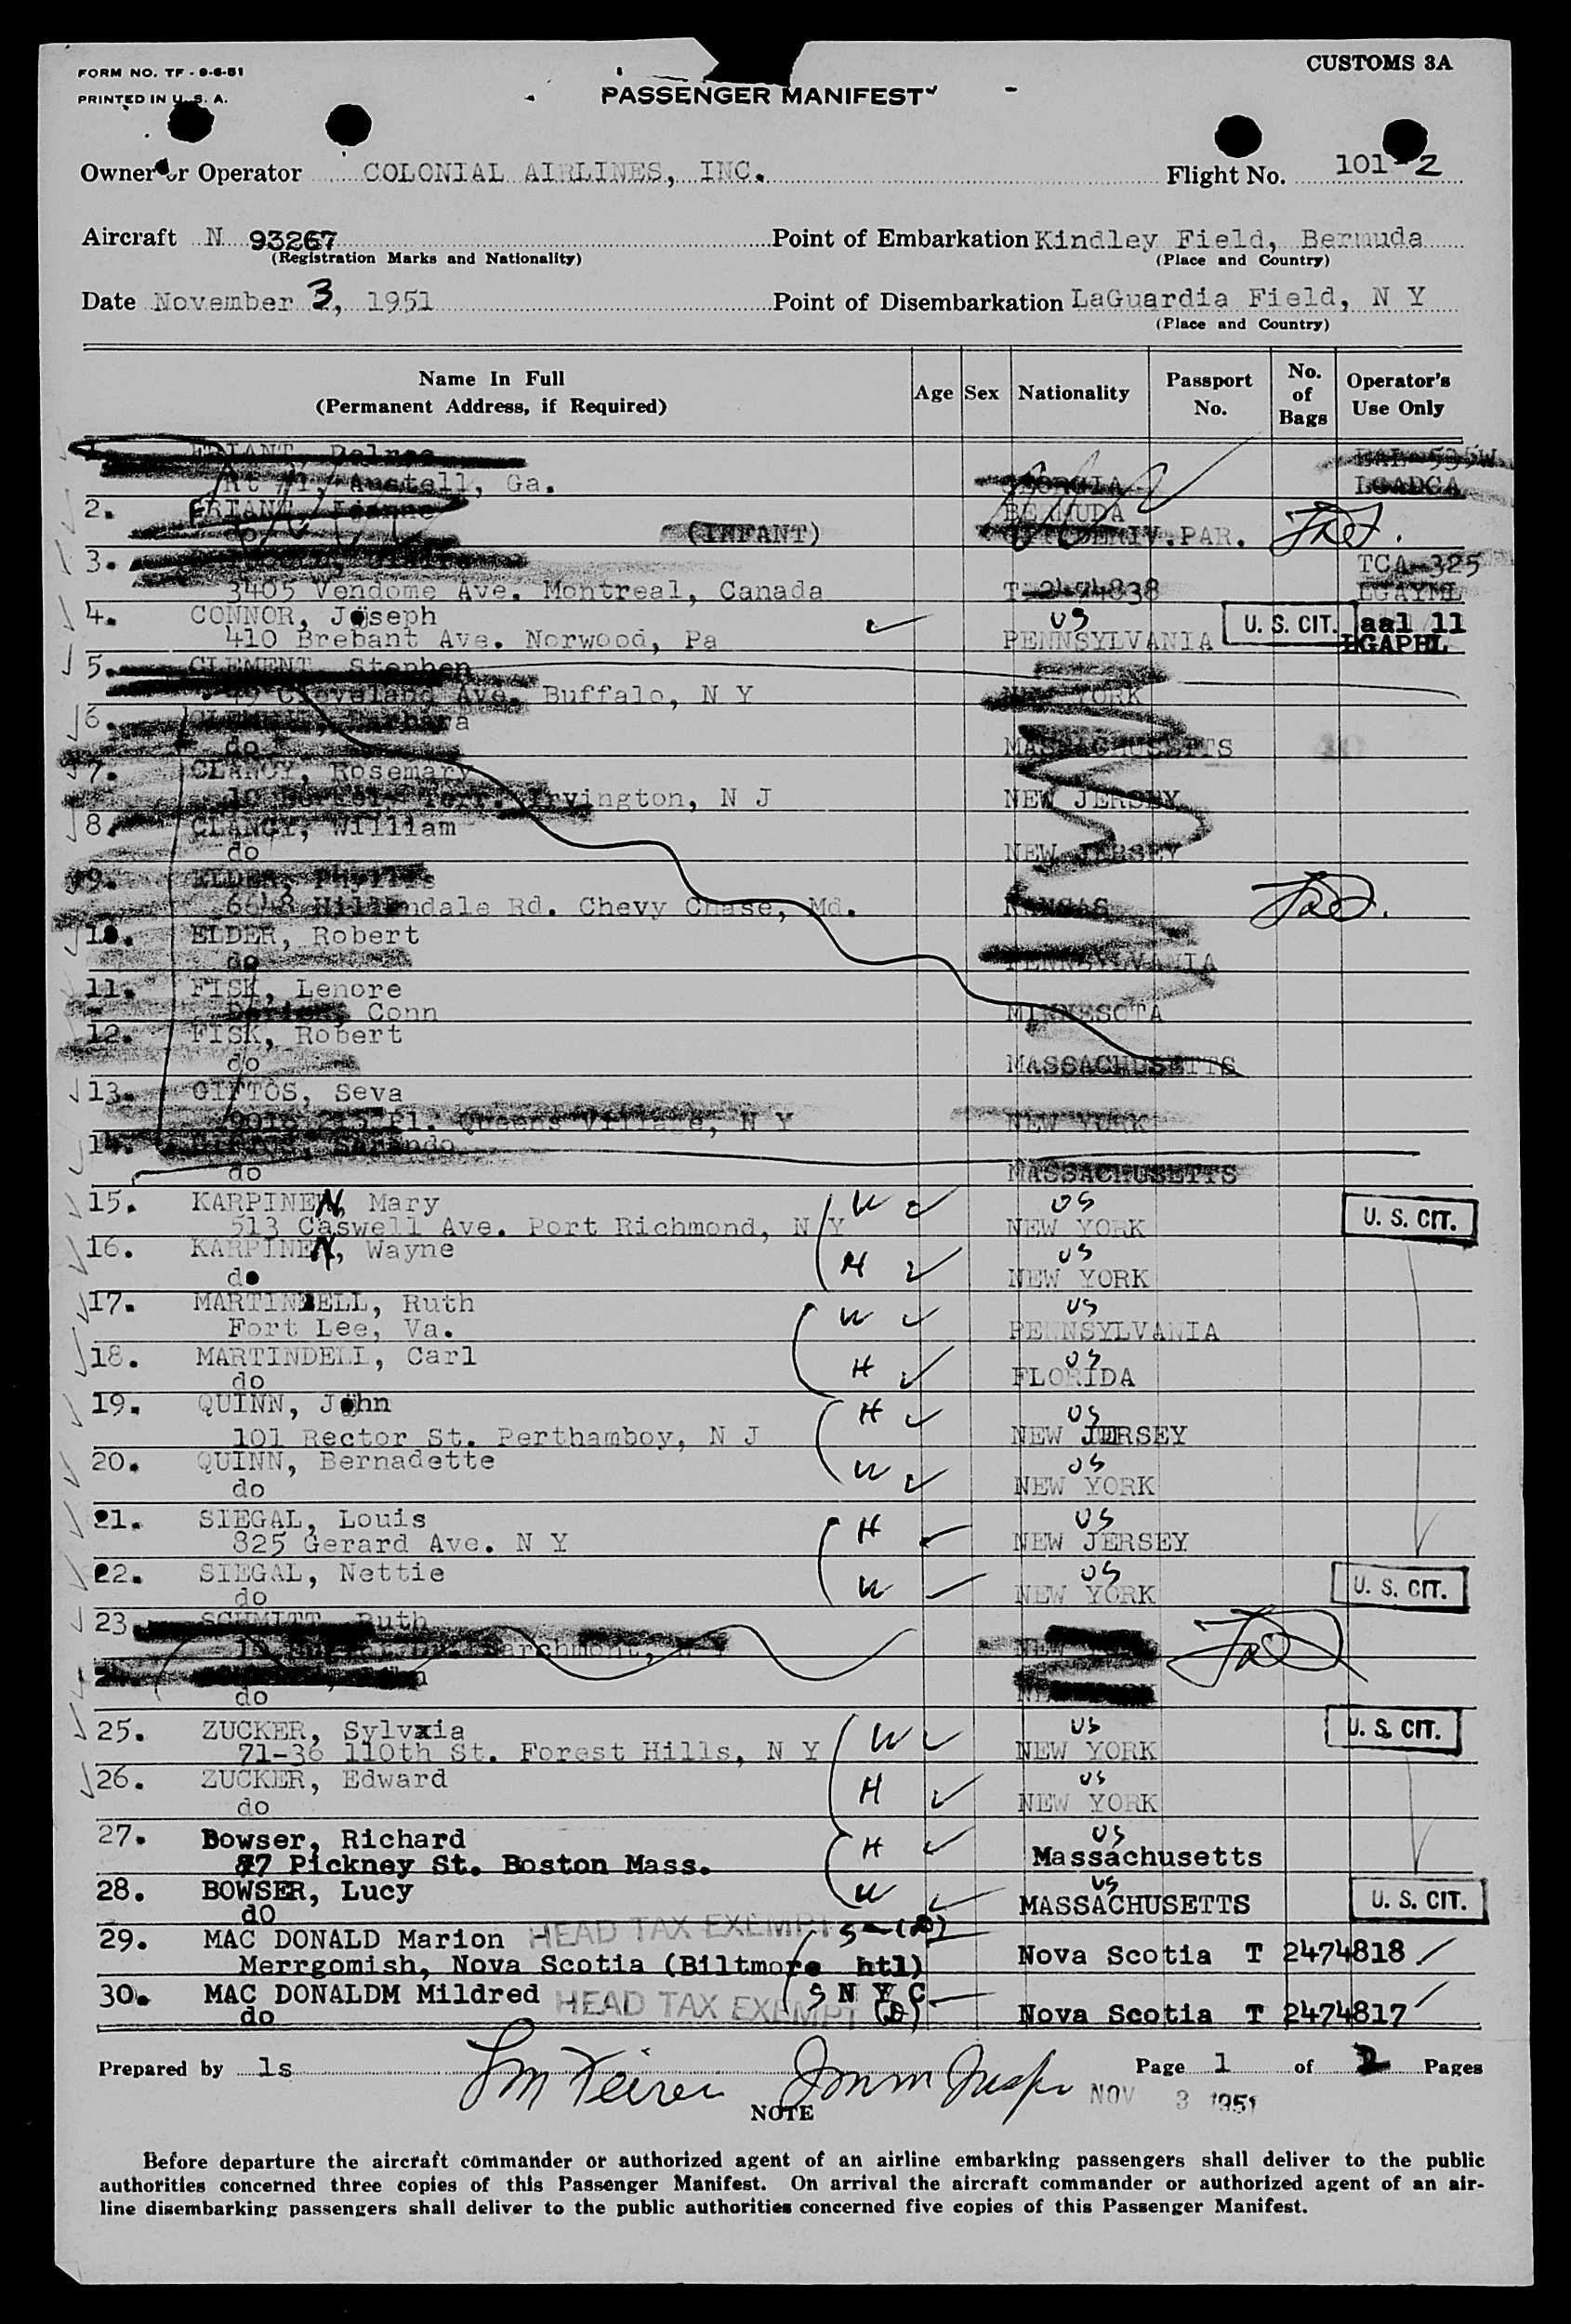 FORM NO. TF - 9-6-51
CUSTOMS 3A
PRINTED IN U. S. A.
PASSENGER MANIFEST
Owner or Operator COLONIAL AIRLINES, INC.
Flight No. 101-2
Aircraft N 93267
Point of Embarkation Kindley Field, Bermuda
(Registration Marks and Nationality)
(Place and Country)
Date November 3, 1951
Point of Disembarkation LaGuardia Field, N Y
(Place and Country)
Name In Full
(Permanent Address, if Required)
Age
Sex
Nationality
Passport No.
No. of Bags
Operator's Use Only
FRIANT,
Rt #1, Austell, Ga. GEORGIA LGADCA
2. FRIANT, BERMUDA
do (INFANT) PAR.
3. TCA-325
3405 Vendome Ave. Montreal, Canada T-2474838 LGAYML
4. CONNOR, Joseph US U. S. CIT. aal 11
410 Brebant Ave. Norwood, Pa PENNSYLVANIA LGAPHL
5. CLEMENT, Stephen
Cleveland Ave. Buffalo, N Y NEW YORK
6. Barbara
do MASSACHUSETTS
7. CLANCY, Rosemary
Terr. Irvington, N J NEW JERSEY
8. CLANCY, William
do NEW JERSEY
9. ELDER, Phyllis
Rd. Chevy Chase, Md. KANSAS
10. ELDER, Robert
do PENNSYLVANIA
11. FISK, Lenore
Conn MINNESOTA
12. FISK, Robert
do MASSACHUSETTS
13. GIFTOS, Seva
Pl. Queens Village, N Y NEW YORK
14.
do MASSACHUSETTS
15. KARPINEN, Mary W US U. S. CIT.
513 Caswell Ave. Port Richmond, N Y NEW YORK
16. KARPINEN, Wayne H US
do NEW YORK
17. MARTINDELL, Ruth W US
Fort Lee, Va. PENNSYLVANIA
18. MARTINDELL, Carl H US
do FLORIDA
19. QUINN, John H US
101 Rector St. Perthamboy, N J NEW JERSEY
20. QUINN, Bernadette W US
do NEW YORK
21. SIEGAL, Louis H US
825 Gerard Ave. N Y NEW JERSEY
22. SIEGAL, Nettie W US U. S. CIT.
do NEW YORK
23. SCHMITT, Ruth
Larchmont, N Y NEW
do
25. ZUCKER, Sylvxia W US U. S. CIT.
71-36 110th St. Forest Hills, N Y NEW YORK
26. ZUCKER, Edward H US
do NEW YORK
27. Bowser, Richard H US
87 Pickney St. Boston Mass. Massachusetts
28. BOWSER, Lucy W US U. S. CIT.
dO MASSACHUSETTS
29. MAC DONALD Marion HEAD TAX EXEMPT S
Merrgomish, Nova Scotia (Biltmore htl) Nova Scotia T 2474818
30. MAC DONALDM Mildred HEAD TAX EXEMPT S N Y C
do Nova Scotia T 2474817
Prepared by ls
Page 1 of 2 Pages
NOV 3 1951
NOTE
Before departure the aircraft commander or authorized agent of an airline embarking passengers shall deliver to the public
authorities concerned three copies of this Passenger Manifest. On arrival the aircraft commander or authorized agent of an air-
line disembarking passengers shall deliver to the public authorities concerned five copies of this Passenger Manifest.